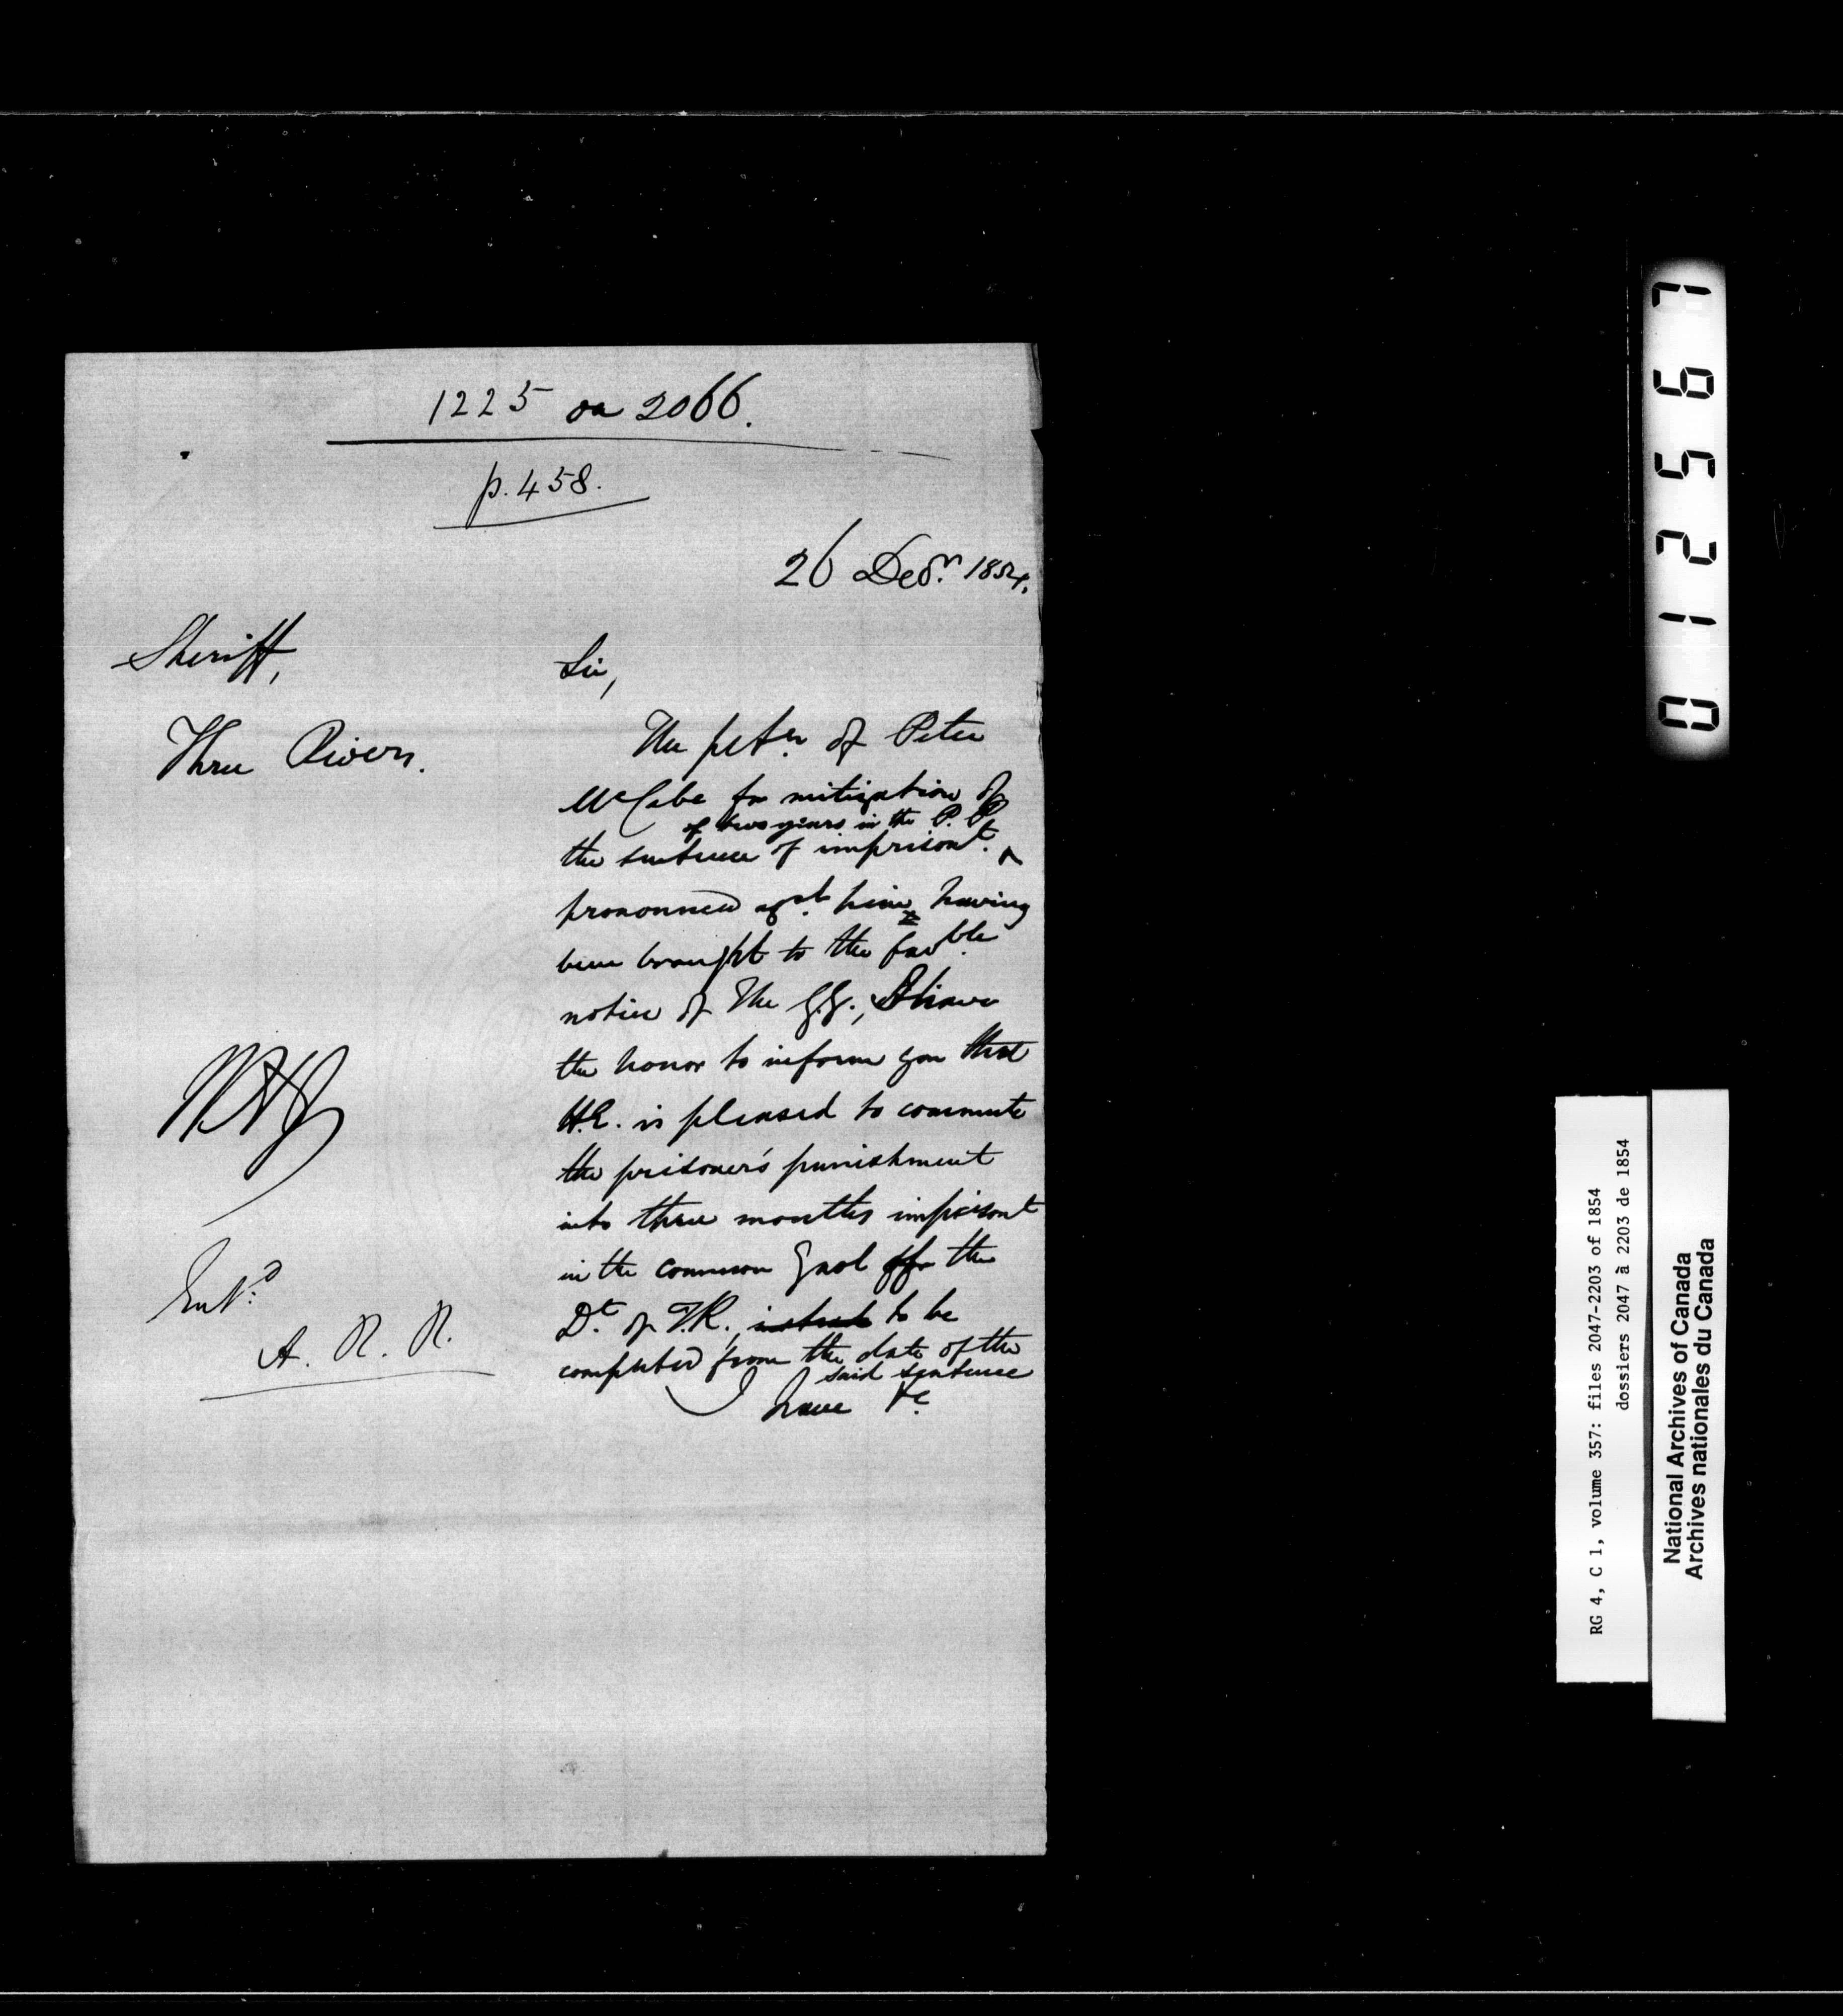 1225 on 2066.
p. 458.
26 Decr. 1854.
Sheriff,
Three Rivers.
Sir,
The petn. of Peter
McCabe for mitigation of
the sentence of imprisont. ^
of two years in the P. P.
pronounced agst. him having
been brought to the favble.
notice of The G.G., I have
the honor to inform you that
H.E. is pleased to commute
the prisoner's punishment
into three months imprisont
in the common Gaol for the
Dt. of T.R., to be
computed from the date of the
said sentence
I have &c.
Entd.
A. R. R.
012567
RG 4, C 1, volume 357: files 2047-2203 of 1854
dossiers 2047 à 2203 de 1854
National Archives of Canada
Archives nationales du Canada